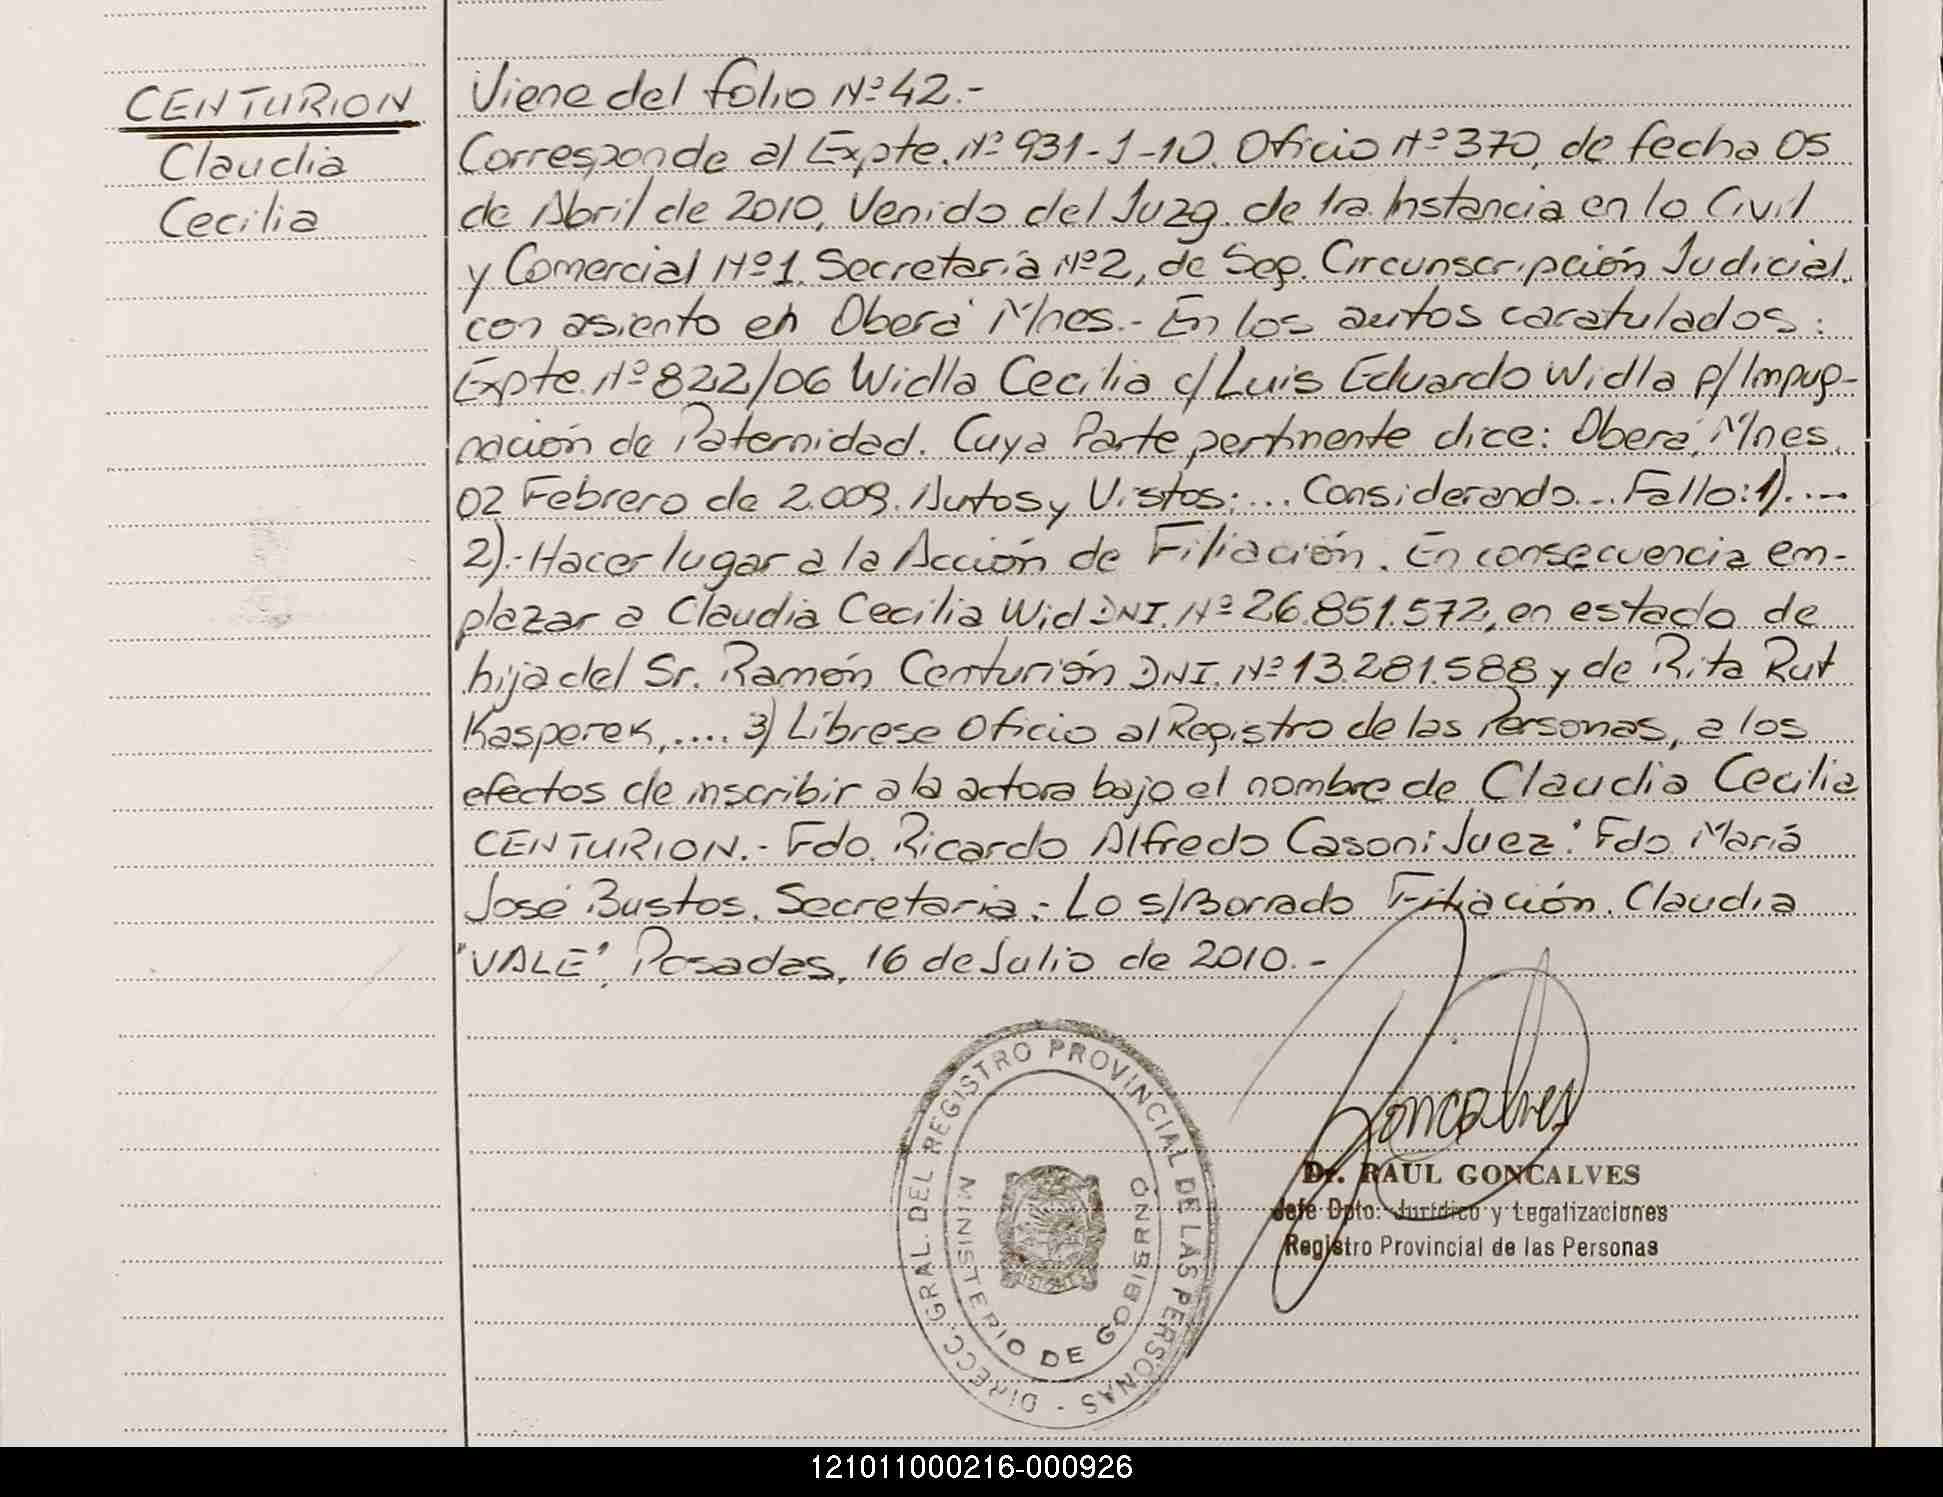 CENTURION
Claudia
Cecilia
Viene del folio Nº 42.-
Corresponde al Expte. Nº 931-1-10. Oficio Nº 370, de fecha 05
de Abril de 2010, Venido del Juzg. de 1ra. Instancia en lo Civil
y Comercial Nº 1, Secretaría Nº 2, de Seg. Circunscripción Judicial,
con asiento en Oberá Mnes.- En los autos caratulados:
Expte. Nº 822/06 Widla Cecilia c/ Luis Eduardo Widla p/ Impug-
nación de Paternidad. Cuya Parte pertinente dice: Oberá, Mnes.
02 Febrero de 2.009. Autos y Vistos;... Considerando... Fallo: 1)....
2).- Hacer lugar a la Acción de Filiación. En consecuencia em-
plazar a Claudia Cecilia Wid DNI. Nº 26.851.572, en estado de
hija del Sr. Ramón Centurión DNI. Nº 13.281.588 y de Rita Rut
Kasperek,.... 3) Líbrese Oficio al Registro de las Personas, a los
efectos de inscribir a la actora bajo el nombre de Claudia Cecilia
CENTURION.- Fdo. Ricardo Alfredo Casoni Juez. Fdo María
José Bustos. Secretaria.- Lo s/Borrado Filiación. Claudia
"VALE", Posadas, 16 de Julio de 2010.-
DIRECC. GRAL. DEL REGISTRO PROVINCIAL DE LAS PERSONAS
MINISTERIO DE GOBIERNO
Goncalves
Dr. RAUL GONCALVES
Jefe Dpto. Jurídico y Legalizaciones
Registro Provincial de las Personas
121011000216-000926